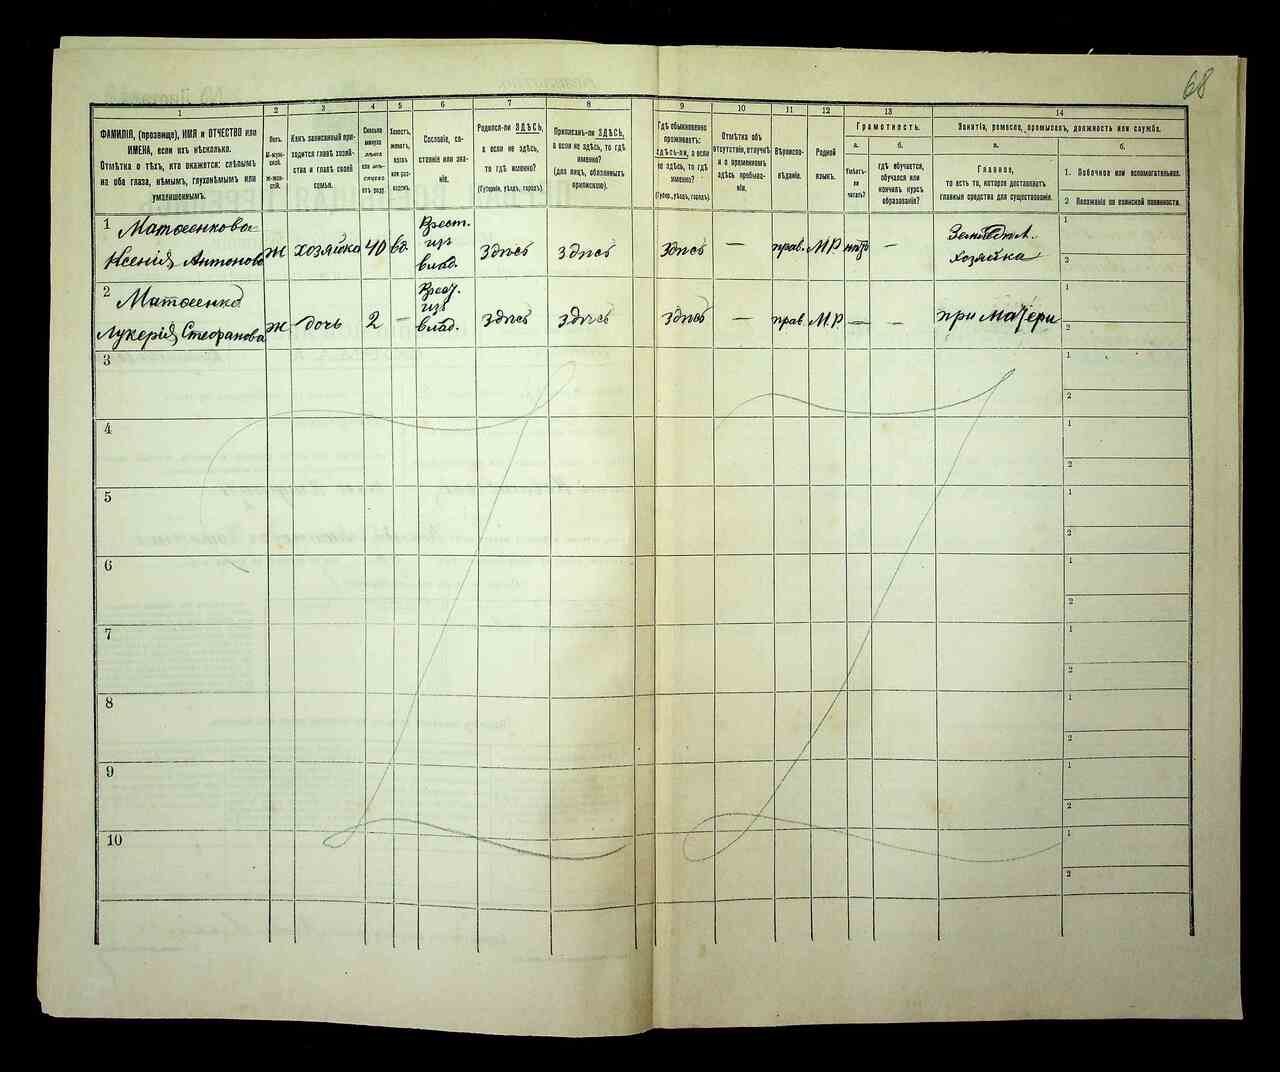 68
1
2
3
4
5
6
7
8
9
10
11
12
13
14
ФАМИЛІЯ, (прозвище), ИМЯ и ОТЧЕСТВО или
ИМЕНА, если ихъ нѣсколько.
Отмѣтка о тѣхъ, кто окажется: слѣпымъ
на оба глаза, нѣмымъ, глухонѣмымъ или
умалишеннымъ.
Полъ.
М-муж-
ской.
Ж-жен-
скій.
Какъ записанный при-
ходится главѣ хозяй-
ства и главѣ своей
семьи.
Сколько
минуло
лѣтъ
или мѣ-
сяцевъ
отъ роду.
Холостъ,
женатъ,
вдовъ
или раз-
веденъ.
Сословіе, со-
стояніе или зва-
ніе.
Родился-ли ЗДѢСЬ,
а если не здѣсь,
то гдѣ именно?
(Губернія, уѣздъ, городъ).
Приписанъ-ли ЗДѢСЬ,
а если не здѣсь, то гдѣ
именно?
(для лицъ, обязанныхъ
припискою).
Гдѣ обыкновенно
проживаетъ:
здѣсь-ли, а если
не здѣсь, то гдѣ
именно?
(Губер., уѣздъ, городъ).
Отмѣтка объ
отсутствіи, отлучкѣ
и о временномъ
здѣсь пребыва-
ніи.
Вѣроиспо-
вѣданіе.
Родной
языкъ.
Грамотность.
а.
Умѣетъ-
ли
читать?
б.
гдѣ обучается,
обучался или
кончилъ курсъ
образованія?
Занятіе, ремесло, промыселъ, должность или служба.
а.
Главное,
то есть то, которое доставляетъ
главныя средства для существованія.
б.
1. Побочное или вспомогательное.
2 Положеніе по воинской повинности.
1 Матвеенкова
Ксенія Антонова ж хозяйка 40 вд. Крест. изъ влад. здѣсь здѣсь здѣсь — прав. М.Р. — Земледѣл. хозяйка
1
2
2 Матвеенко
Лукерія Стефанова ж дочь 2 — Крест. изъ влад. здѣсь здѣсь здѣсь — прав. М.Р. — — при матери
1
2
3
1
2
4
1
2
5
1
2
6
1
2
7
1
2
8
1
2
9
1
2
10
1
2